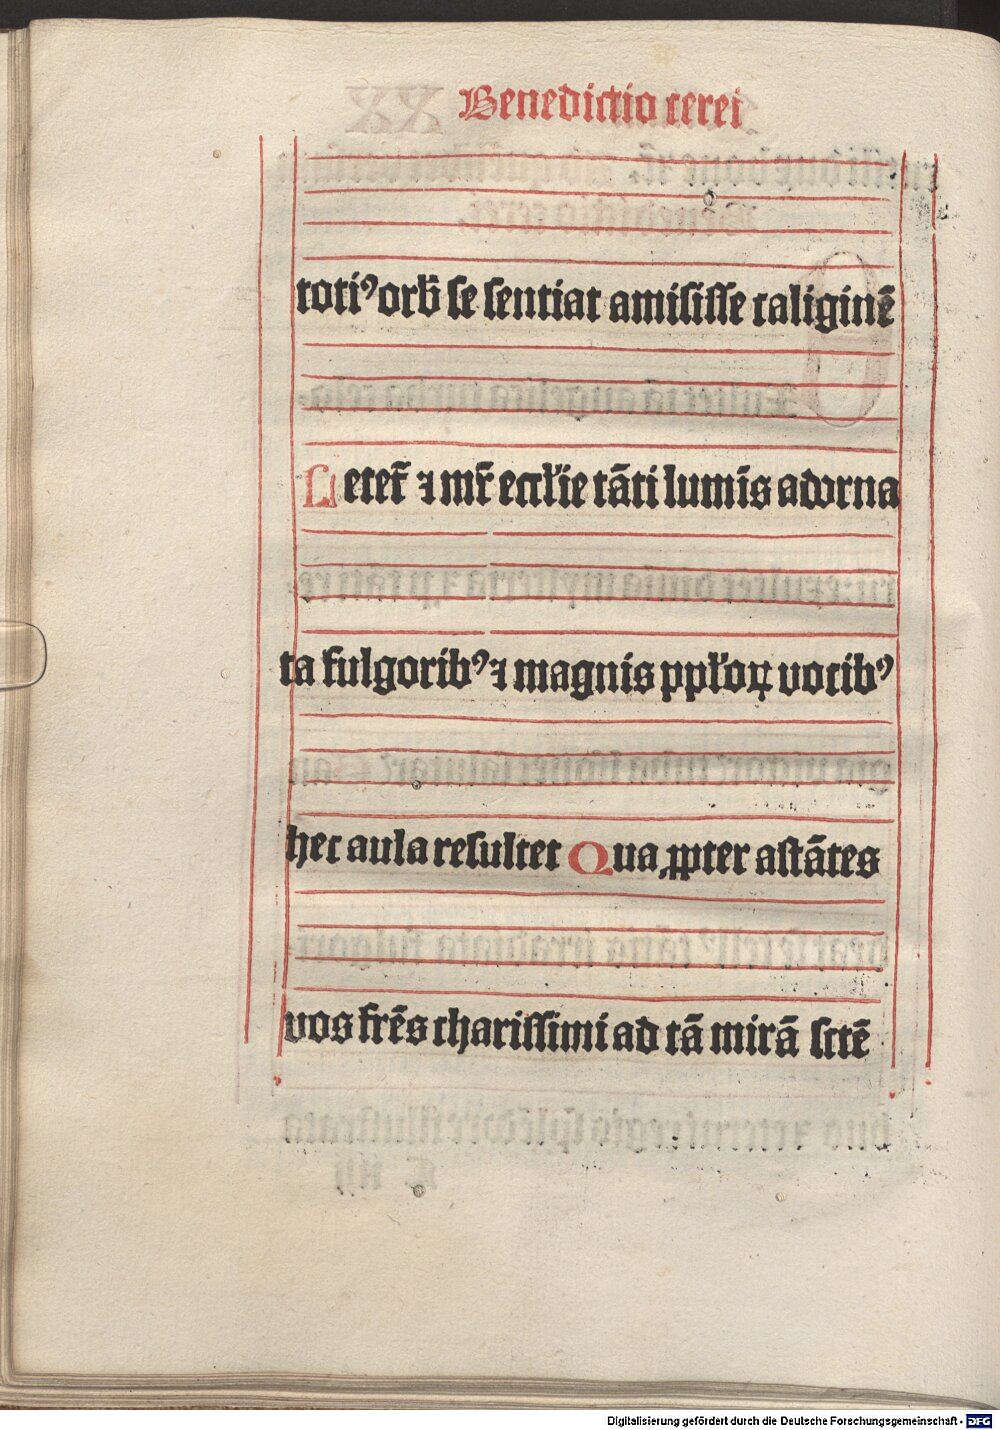 Benedictio cerei
totiꝰ orb̄ se sentiat amisisse caliginē
Letet̄ ⁊ mr̄ eccl'ie tāti lumīs adorna
ta fulgorib⁹ ⁊ magnis ppl'oꝝ vocib⁹
hec aula resultet Qua ꝓpter astātes
vos frēs charissimi ad tā mirā sctē
Digitalisierung gefördert durch die Deutsche Forschungsgemeinschaft - DFG